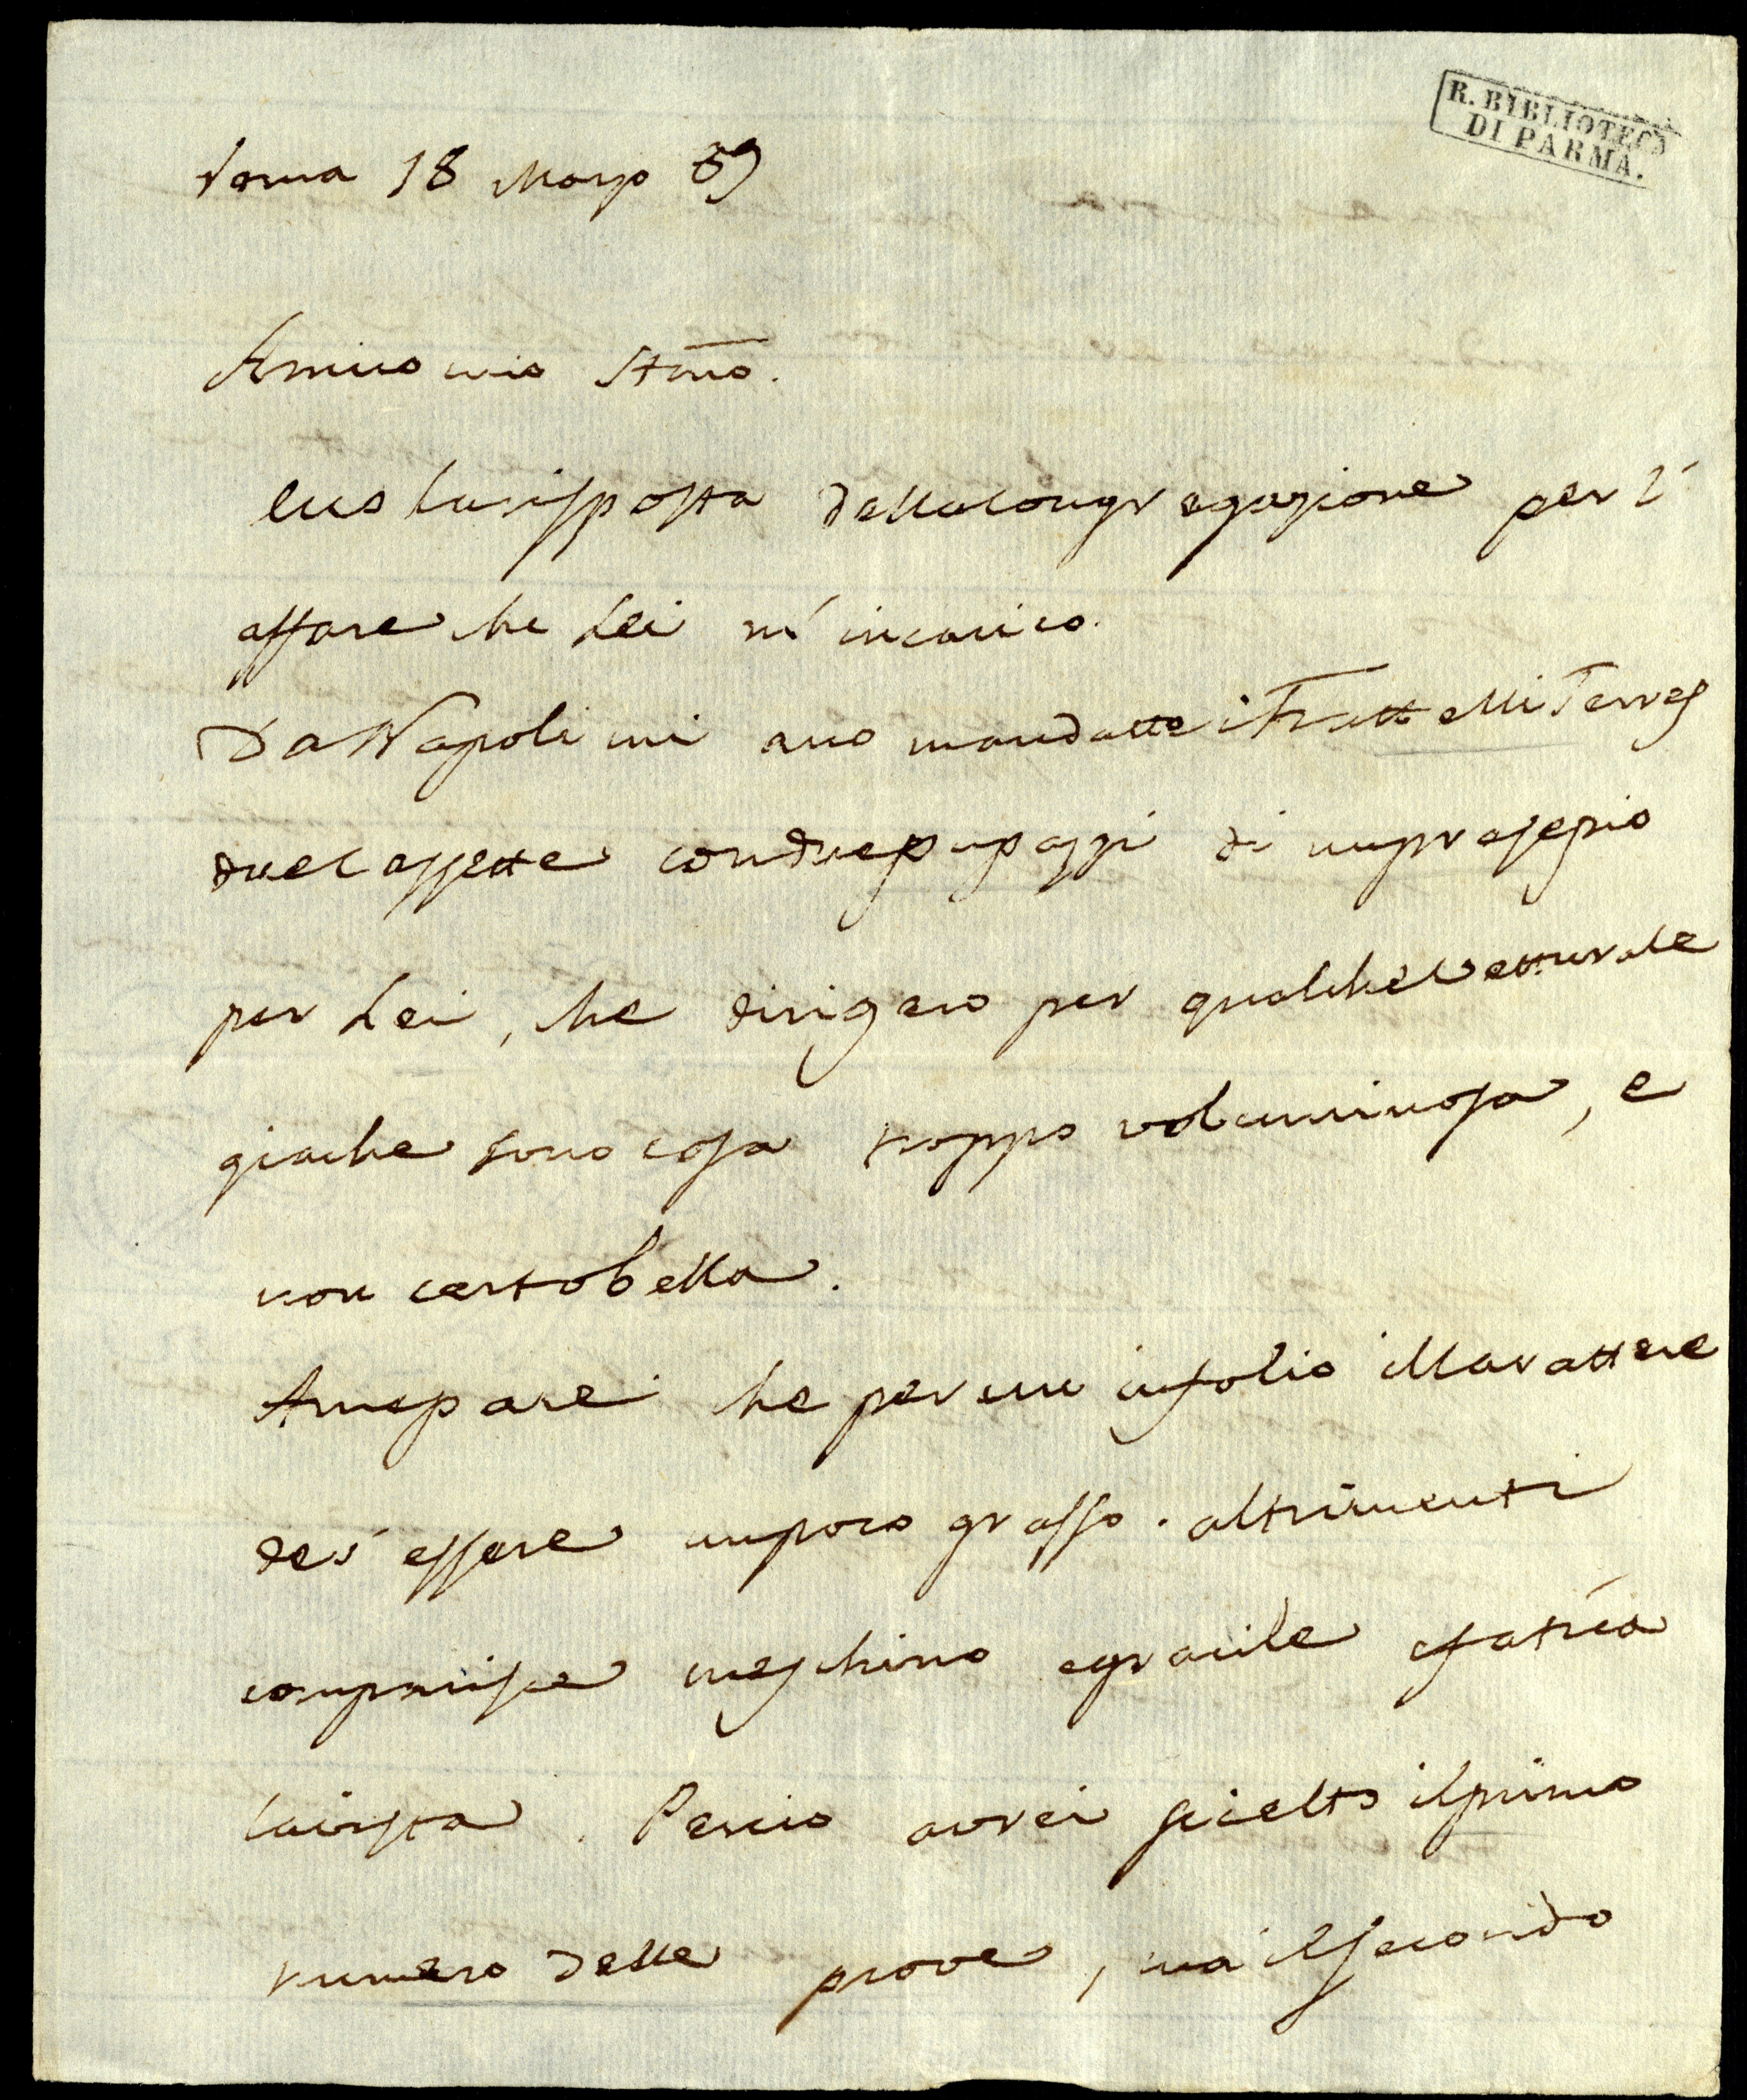 R. BIBLIOTECA
DI PARMA.
Roma 18 Marzo 89
Amico mio Stmo.
ecco la risspossta della Congregazione per l'
affare che Lei m'incarico.
Da Napoli mi ano mandatto i Frattelli Terres
due Cassette con due pupazzi di un presepio
per Lei, che dirigero per qualche Vetturale
giache sono cosa troppo voluminosa, e
non certo bella.
A me pare che per un in folio il Carattere
dev'essere un poco grosso. altrimenti
comparisce meschino e gracile e fatica
la vista. Percio avrei scielto il primo
numero delle prove, ma il secondo